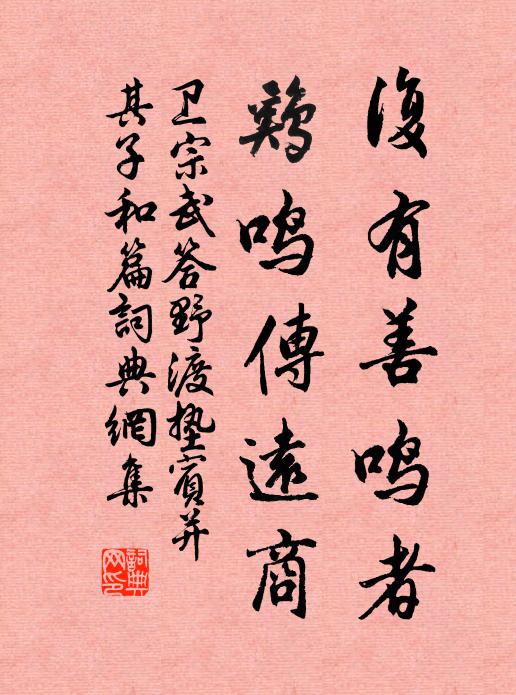 復有善鸣者
鷄鸣傳遠商
卫宗武答野渡墊賓并
其子和篇詞典網集
詞典网印